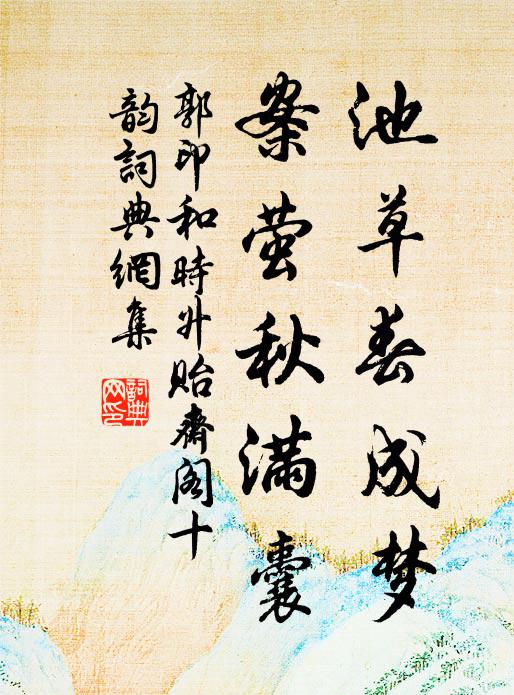 池草春成梦
案萤秋满囊
郭印和時升贻齋阁十
韵詞典網集
詞典
网印